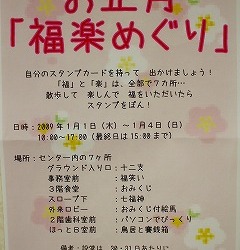 お正月
「福楽めぐり」
自分のスタンプカードを持って 出かけましょう！
「福」と「楽」は、全部で7カ所…
散歩して 楽しんで 福をいただいたら
スタンプをぽん！
日時：2009年1月1日（木）～1月4日（日）
10:00～17:00（最終日は15:00まで）
場所：センター内の7ヶ所
グラウンド入り口：十二支
事務室前：福笑い
3階食堂：おみくじ
スロープ下：七福神
外来ロビー：おみくじ付絵馬
2階歯科室前：パソコンでびっくり
ほっとB室前：鳥居と賽銭箱
備考：設営は 30・31日あたりに